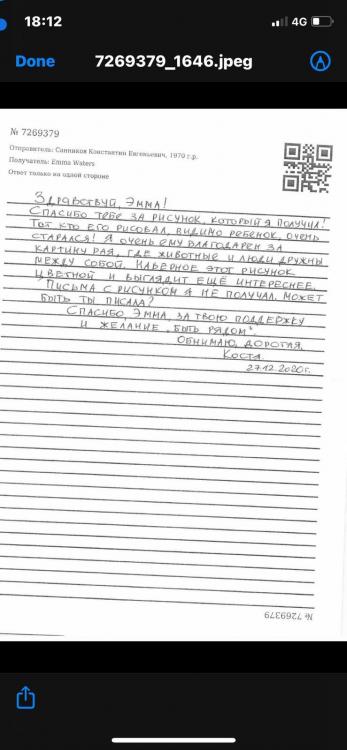 18:12
4G
Done
7269379_1646.jpeg
№ 7269379
Отправитель: Санников Константин Евгеньевич, 1970 г.р.
Получатель: Emma Waters
Ответ только на одной стороне
Здравствуй, Эмма!
Спасибо тебе за рисунок, который я получил!
Тот кто его рисовал, видимо ребенок, очень
старался! Я очень ему благодарен за
картину рая, где животные и люди дружны
между собой. Наверное этот рисунок
цветной и выглядит ещё интереснее.
Письма с рисунком я не получал. Может
быть ты писала?
Спасибо, Эмма, за твою поддержку
и желание „быть рядом“.
Обнимаю, дорогая.
Коста.
27.12.2020г.
№ 7269379